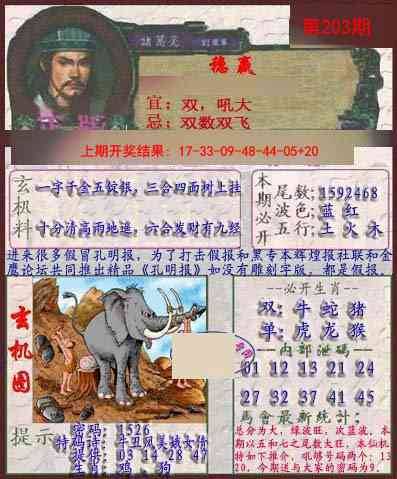 第203期
諸葛亮
稳赢
宜：双，吼大
忌：双数双飞
上期开奖结果：17-33-09-48-44-05+20
玄机料
一字千金五锭银，三合四面树上挂
十分清高雨地遥，六合发财有九经
本期必开
尾数：1592468
波色：蓝 红
五行：土 火 木
进来很多假冒孔明报，为了打击假报和黑专本辉煌报社联和金
鹰论坛共同推出精品《孔明报》如没有雕刻字版，都是假报。
玄机图
--必开生肖--
双：牛 蛇 猪
单：虎 龙 猴
--内部泄码--
01 12 13 21 24
27 32 34 37 44
31 32 37 41 45
馬會最新統計：
总分为大，绿波旺，次蓝波，本
期以五和七之尾数大旺，本仙机
特如下推介，吼够号码两个：13
20，今期送与大家的密码为9．
提示
密码：1526
特码诗：牛丑凤美娥女倍
提供：03 14 28 47
生肖：鸡 、狗